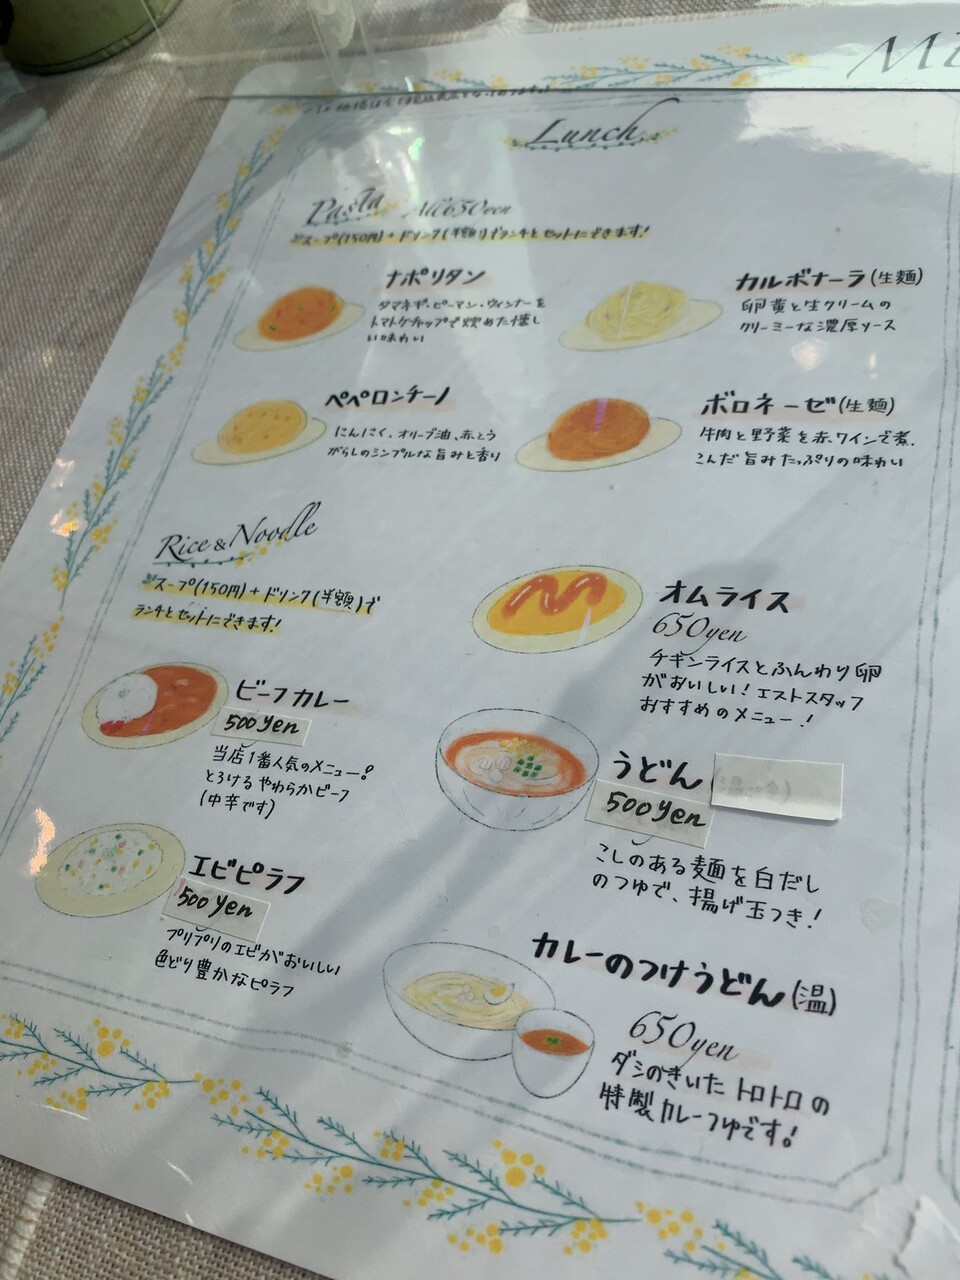 Lunch
Pasta All 650yen
スープ(150円)+ドリンク(半額)でランチとセットにできます!
ナポリタン
タマネギ・ピーマン・ウィンナーを
トマトケチャップで炒めた懐し
い味わい
カルボナーラ(生麺)
卵黄と生クリームの
クリーミーな濃厚ソース
ペペロンチーノ
にんにく、オリーブ油、赤とう
がらしのシンプルな旨みと香り
ボロネーゼ(生麺)
牛肉と野菜を赤ワインで煮
こんだ旨みたっぷりの味わい
Rice & Noodle
スープ(150円)+ドリンク(半額)で
ランチとセットにできます!
オムライス
650yen
チキンライスとふんわり卵
がおいしい!エストスタッフ
おすすめのメニュー!
ビーフカレー
500yen
当店1番人気のメニュー!
とろける やわらかビーフ
(中辛です)
うどん
500yen
こしのある麺を白だし
のつゆで、揚げ玉つき!
エビピラフ
500yen
プリプリのエビがおいしい
色どり豊かなピラフ
カレーのつけうどん(温)
650yen
ダシのきいた トロトロの
特製カレーつゆです!